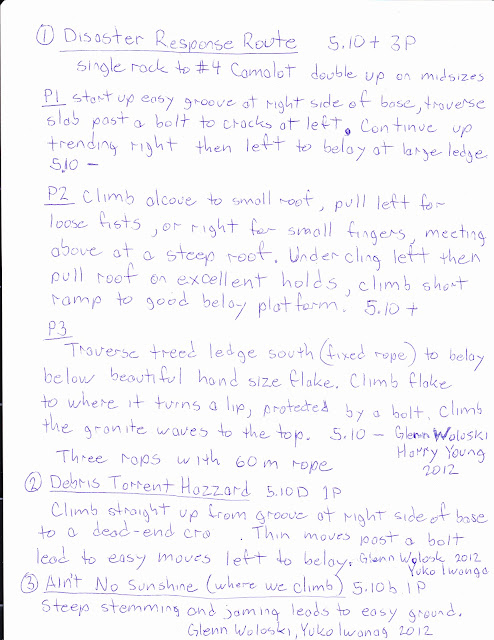 ① Disaster Response Route 5.10+ 3P
single rack to #4 Camalot double up on midsizes
P1 start up easy groove at right side of base, traverse
slab past a bolt to cracks at left. Continue up
trending right then left to belay at large ledge
5.10 -
P2 Climb alcove to small roof, pull left for
loose fists, or right for small fingers, meeting
above at a steep roof. Under cling left then
pull roof on excellent holds, climb short
ramp to good belay platform. 5.10 +
P3
Traverse treed ledge south (fixed rope) to belay
below beautiful hand size flake. Climb flake
to where it turns a lip, protected by a bolt. Climb
the granite waves to the top. 5.10 - Glenn Woloski
Harry Young
Three raps with 60m rope 2012
② Debris Torrent Hazzard 5.10D 1P
Climb straight up from groove at right side of base
to a dead-end cra . Thin moves past a bolt
lead to easy moves left to belay. Glenn Wolosk 2012
Yuko Iwanaga
③ Ain't No Sunshine (where we climb) 5.10b 1P
Steep stemming and jaming leads to easy ground.
Glenn Woloski, Yuko Iwanag 2012